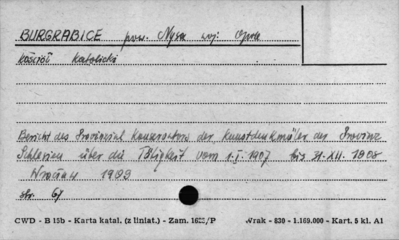 BURGRABICE pow. Nysa woj. Opole
kościół katolicki
Bericht des Provinzial Konservators der Kunstdenkmäler der Provinz
Schlesien über die Tätigkeit vom 1.I.1907 bis 31.XII.1908
Wrocław
str. 67
CWD - B 15b - Karta katal. (z liniat.) - Zam. /P Wrak - 630 - 1.169.000 - Kart. 5 kl. A1